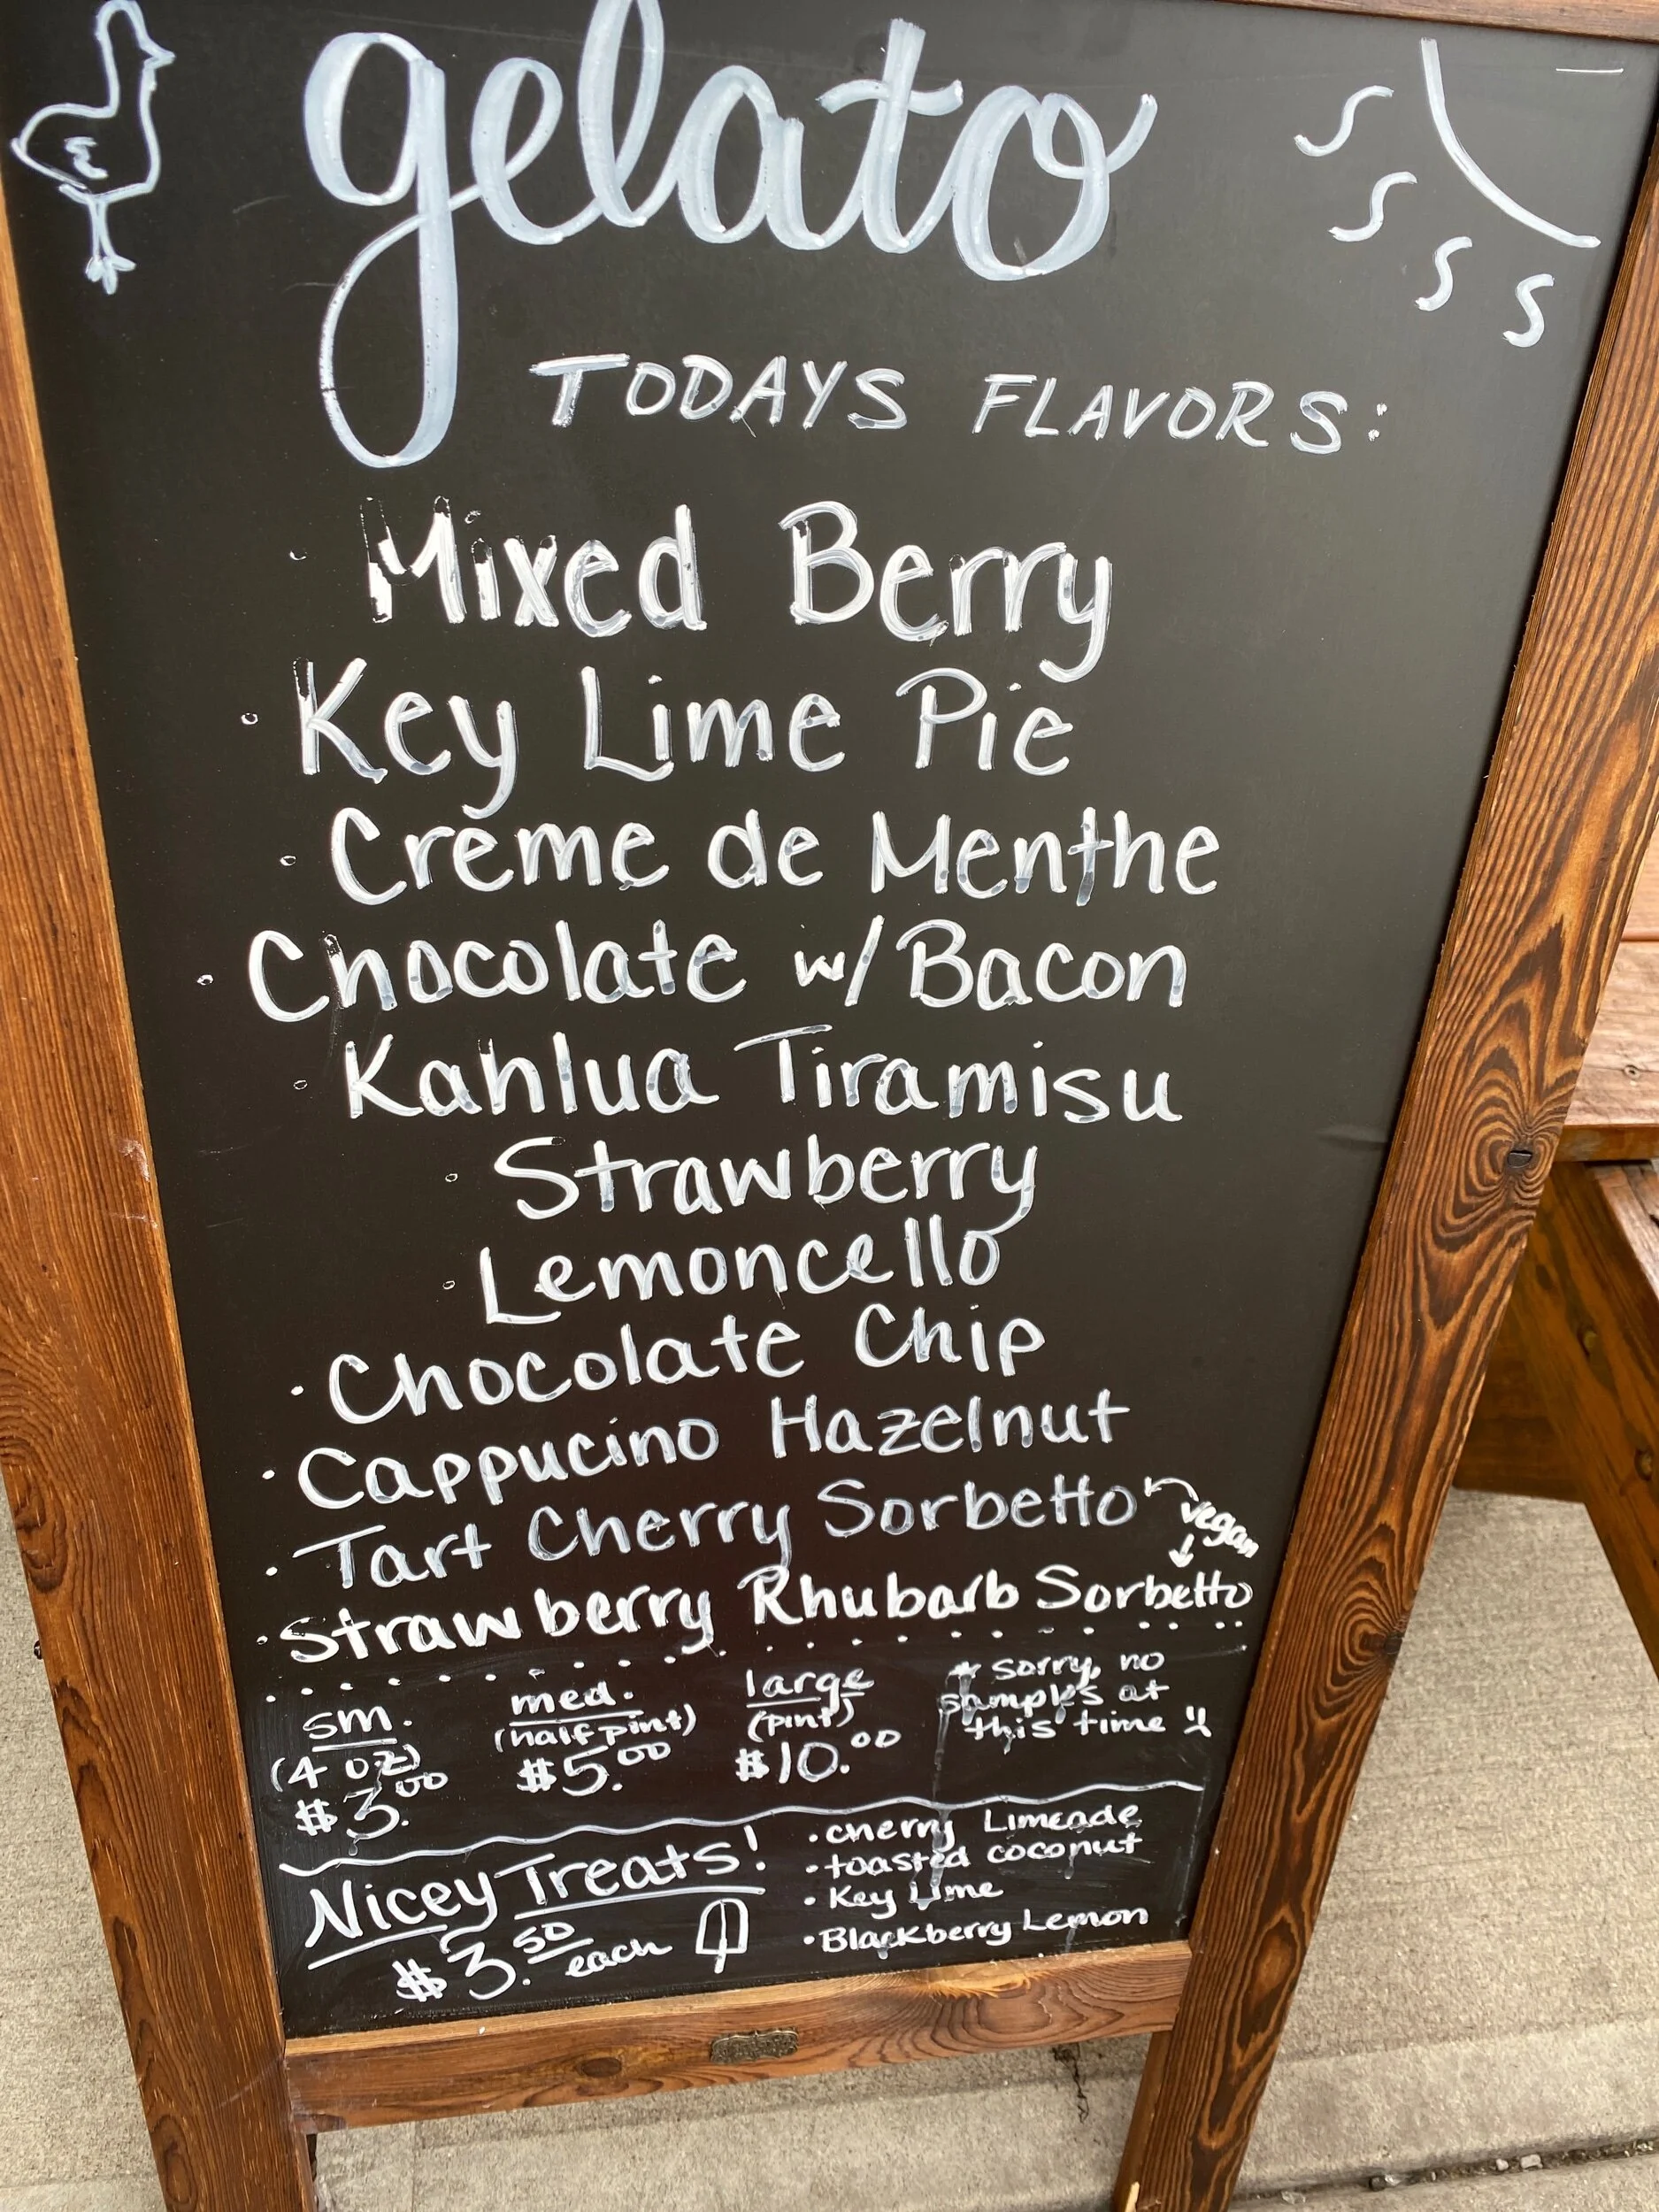 gelato
TODAYS FLAVORS:
· Mixed Berry
· Key Lime Pie
· Crème de Menthe
· Chocolate w/ Bacon
· Kahlua Tiramisu
· Strawberry
· Lemoncello
· Chocolate Chip
· Cappucino Hazelnut
· Tart Cherry Sorbetto
vegan
· Strawberry Rhubarb Sorbetto
sm.
(4 oz)
$3.00
med.
(half pint)
$5.00
large
(pint)
$10.00
* sorry, no
samples at
this time
Nicey Treats!
$3.50 each
· cherry Limeade
· toasted coconut
· Key Lime
· Blackberry Lemon